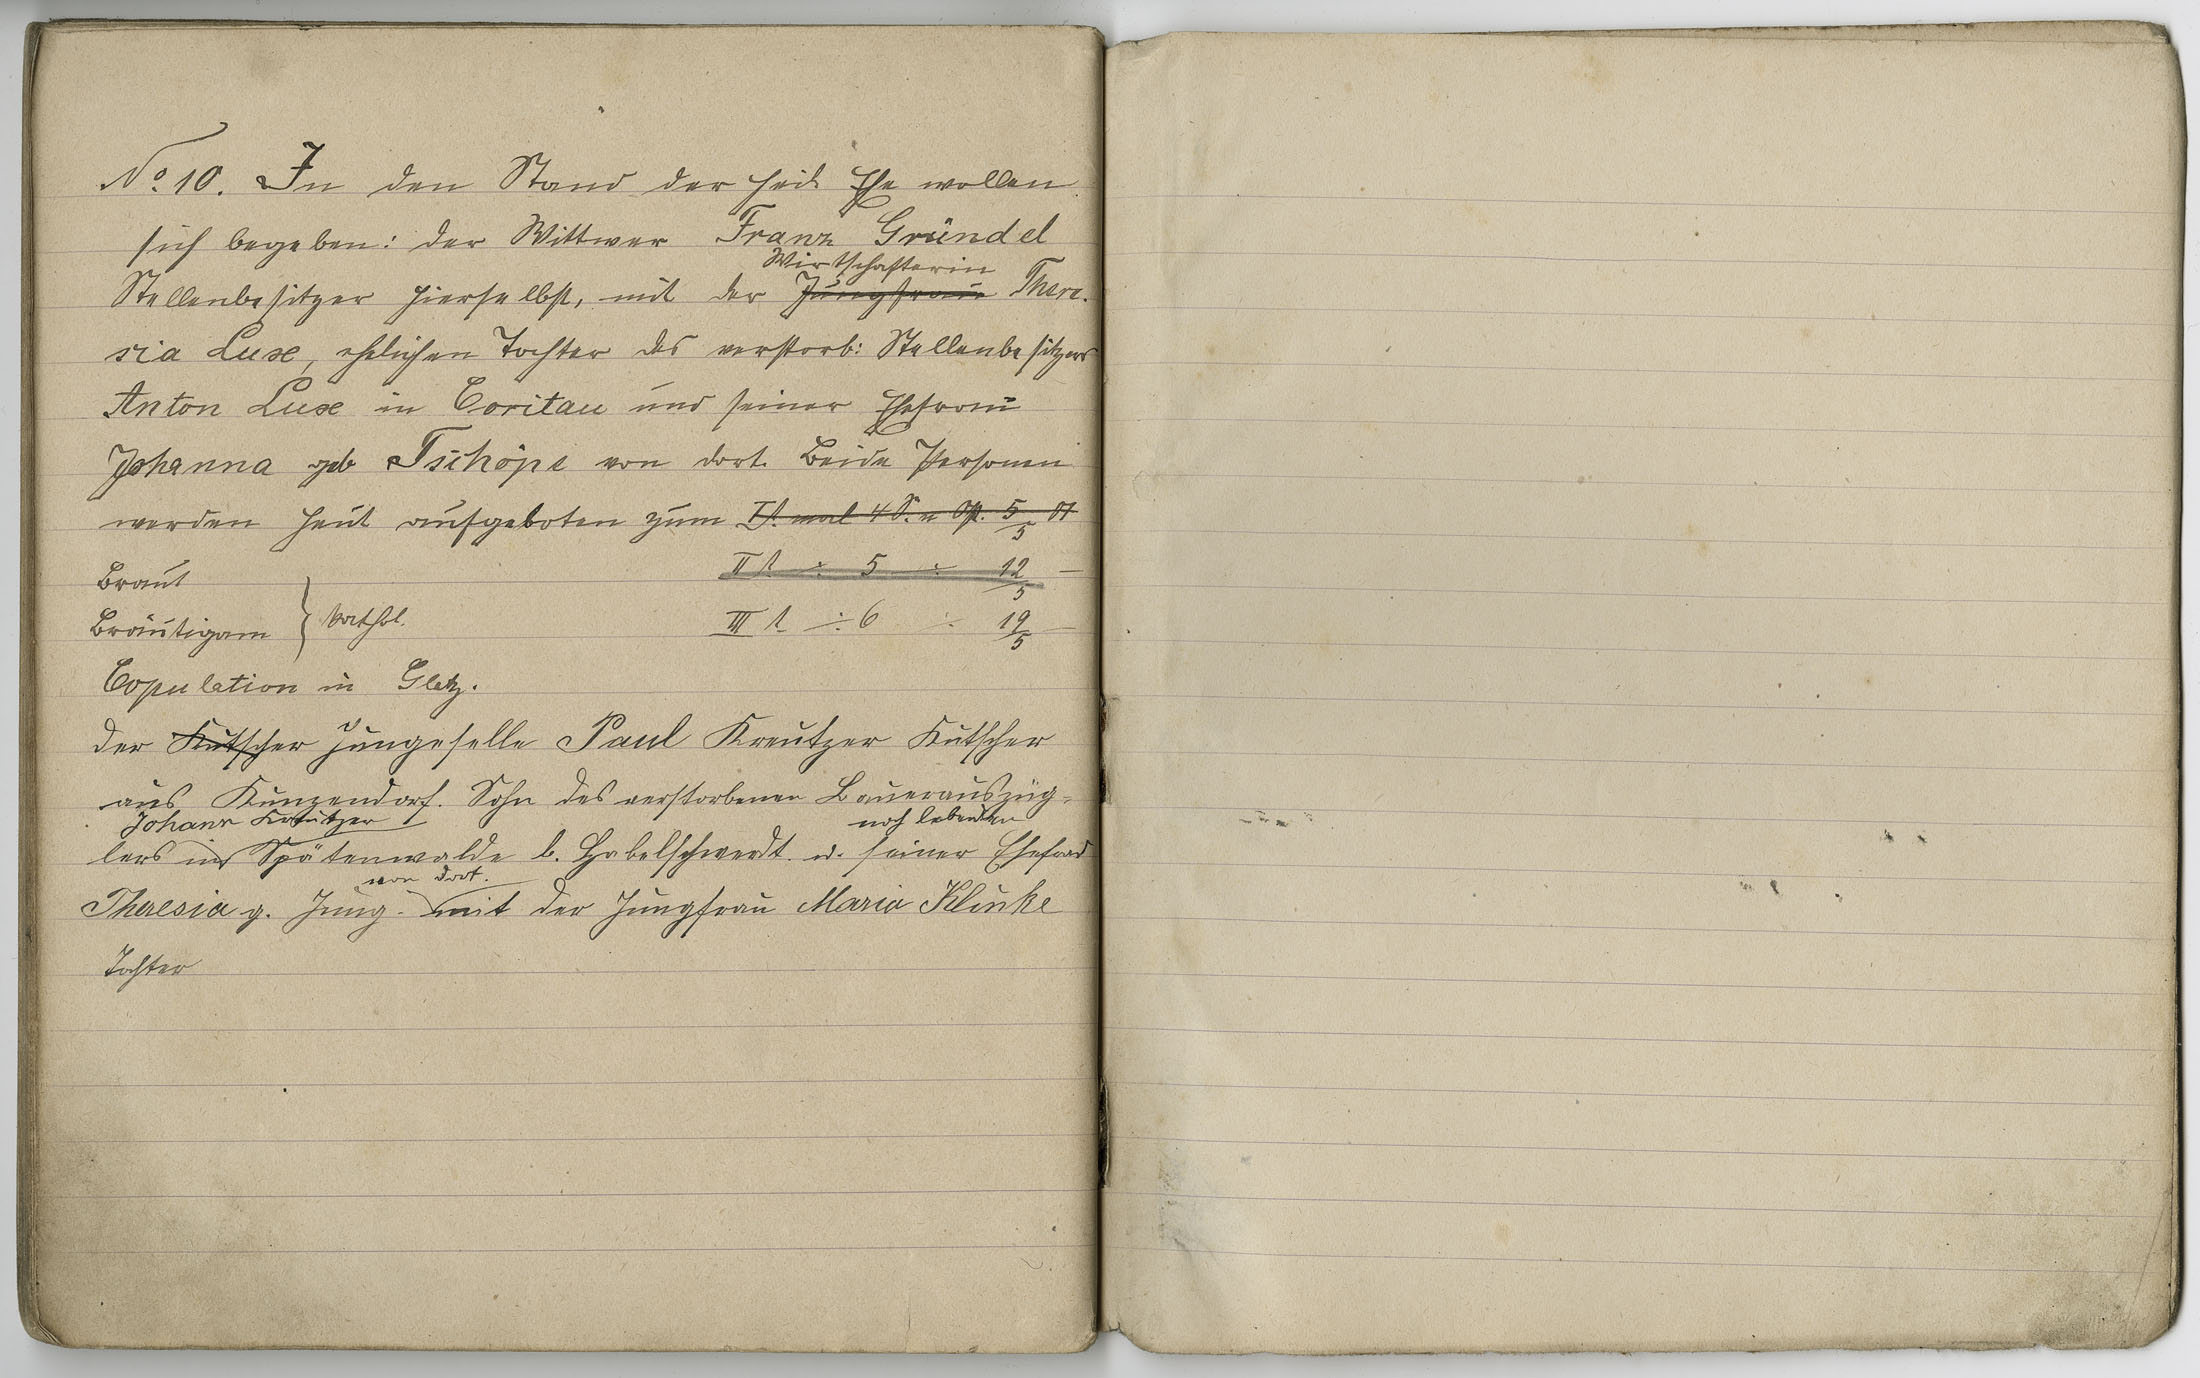 No. 10. In den Stand der heil. Ehe wollen
sich begeben: der Wittwer Franz Gründel
Wirtschafterin
Stellenbesitzer hierselbst, mit der Jungfrau There-
sia Luxe, ehelichen Tochter des verstorb: Stellenbesitzers
Anton Luxe in Coritau und seiner Ehefrau
Johanna geb Tschöpe von dort. Beide Personen
werden heut aufgeboten zum I t. mal 4 S. n Ost. 5/5 01
Braut II t ÷ 5 ÷ 12/5 —
Bräutigam } kathol. III t. ÷ 6 ÷ 19/5 —
Copulation in Glatz.
Der Kutscher Jungeselle Paul Kreutzer Kutscher
aus Kunzendorf. Sohn des verstorbenen Bauerauszüg-
Johann Kreutzer noch lebenden
lers in Spätenwalde b. Habelschwerdt. u. seiner Ehefrau
von dort.
Theresia g. Jung. mit der Jungfrau Maria Klinke
Tochter